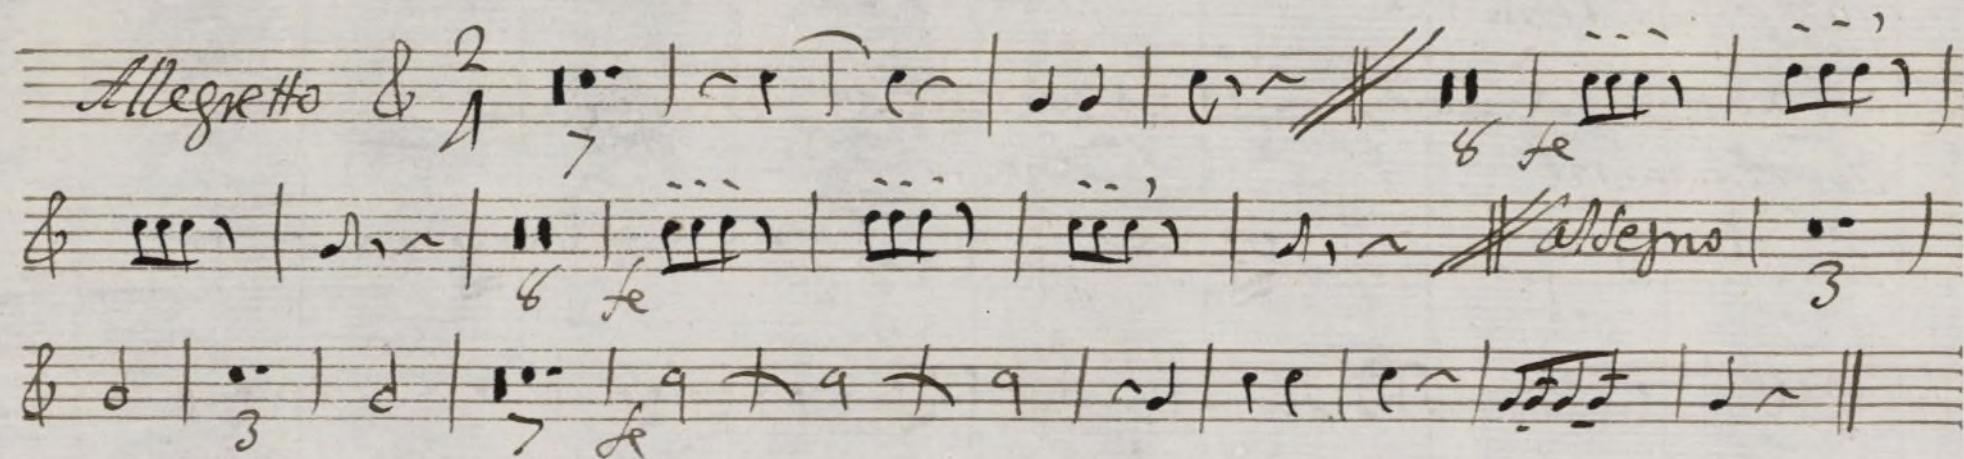 Allegretto 2 4 7 8 fe
8 fe al Segno 3
3 7 fe